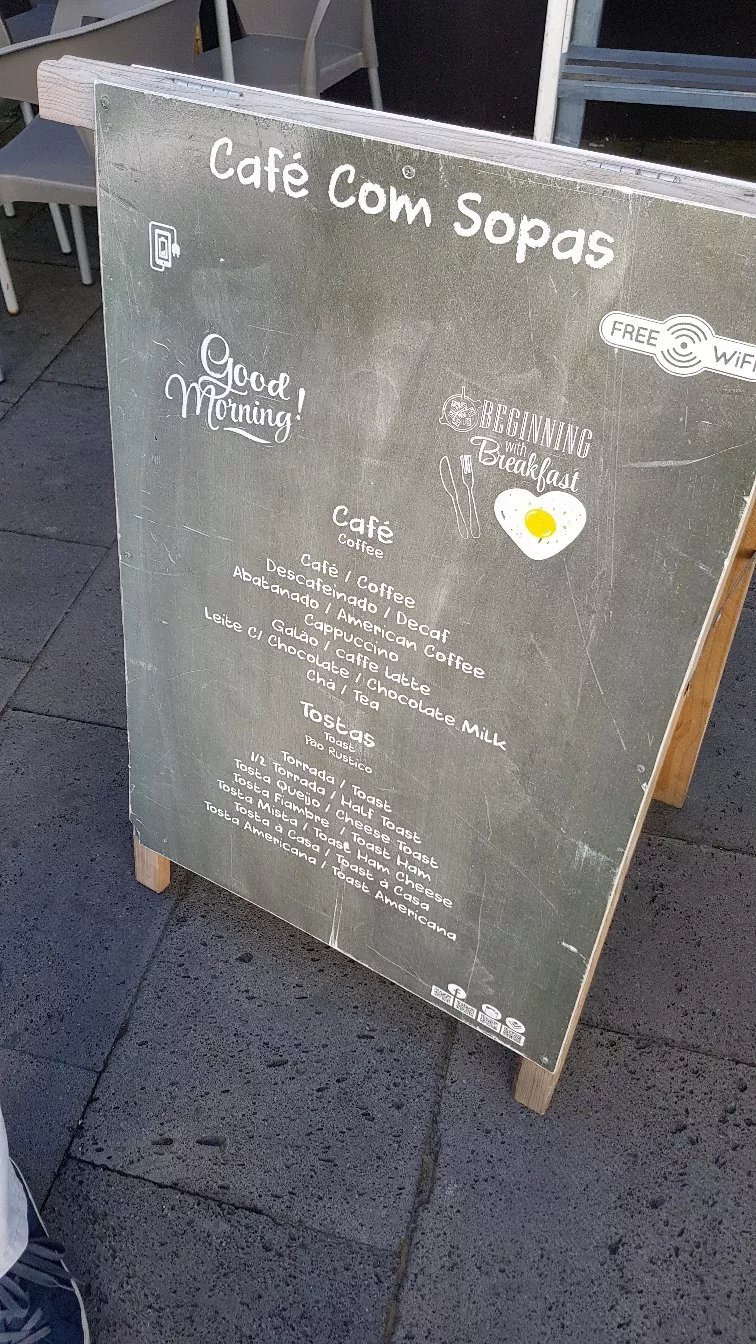 Café Com Sopas
FREE WiFi
Good
Morning!
BEGINNING
with
Breakfast
Café
Coffee
Café / Coffee
Descafeinado / Decaf
Abatanado / American Coffee
Cappuccino
Galão / caffe latte
Leite C/ Chocolate / Chocolate Milk
Chá / Tea
Tostas
Toast
Pão Rustico
Torrada / Toast
1/2 Torrada / Half Toast
Tosta Queijo / Cheese Toast
Tosta Fiambre / Toast Ham
Tosta Mista / Toast Ham Cheese
Tosta à Casa / Toast à Casa
Tosta Americana / Toast Americana